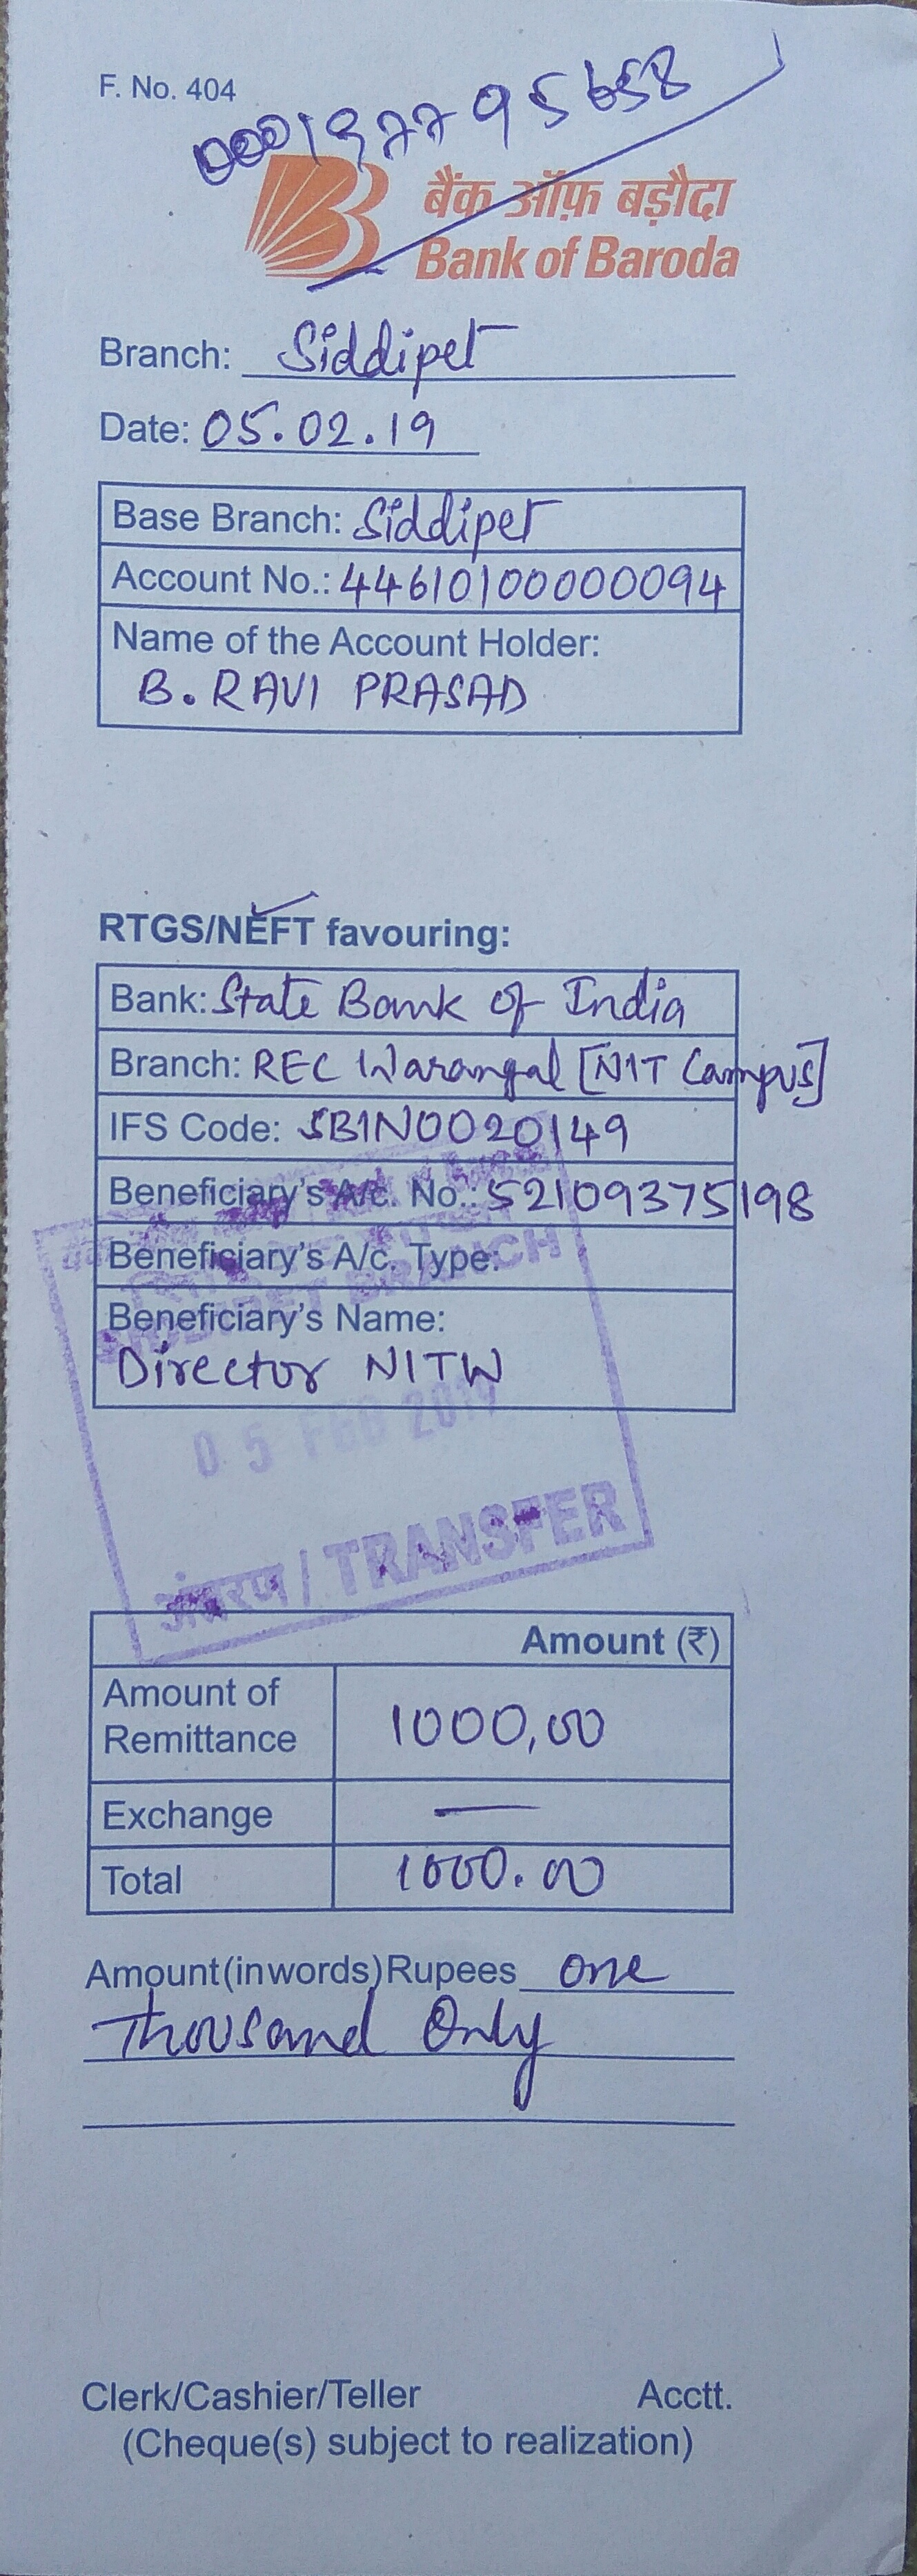 F. No. 404
000197795658
बैंक ऑफ़ बड़ौदा
Bank of Baroda
Branch: Siddipet
Date: 05.02.19
Base Branch: Siddipet
Account No.: 44610100000094
Name of the Account Holder:
B. RAVI PRASAD
RTGS/NEFT favouring:
Bank: State Bank of India
Branch: REC Warangal [NIT Campus]
IFS Code: SBIN0020149
Beneficiary's A/c. No.: 52109375198
Beneficiary's A/c. Type:
BRANCH
Beneficiary's Name:
Director NITW
05 FEB 2019
अंतरण / TRANSFER
Amount (₹)
Amount of Remittance 1000,00
Exchange —
Total 1000.00
Amount(inwords)Rupees one
Thousand Only
Clerk/Cashier/Teller Acctt.
(Cheque(s) subject to realization)